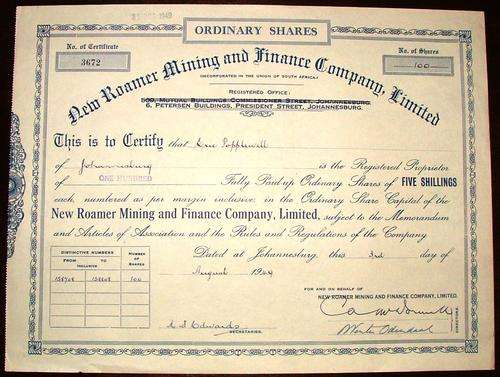 ORDINARY SHARES
No. of Certificate
3672
No. of Shares
100
New Roamer Mining and Finance Company, Limited
(INCORPORATED IN THE UNION OF SOUTH AFRICA)
REGISTERED OFFICE:
509, MUTUAL BUILDINGS COMMISSIONER STREET, JOHANNESBURG
6, PETERSEN BUILDINGS, PRESIDENT STREET, JOHANNESBURG.
This is to Certify that Eric Popplewell
of Johannesburg is the Registered Proprietor
of ONE HUNDRED Fully Paid-up Ordinary Shares of FIVE SHILLINGS
each, numbered as per margin inclusive, in the Ordinary Share Capital of the
New Roamer Mining and Finance Company, Limited, subject to the Memorandum
and Articles of Association and the Rules and Regulations of the Company
DISTINCTIVE NUMBERS
NUMBER OF SHARES
FROM TO
INCLUSIVE
100
Dated at Johannesburg, this 3rd day of
August
FOR AND ON BEHALF OF
NEW ROAMER MINING AND FINANCE COMPANY, LIMITED.
DIRECTORS.
Edwards
SECRETARIES.